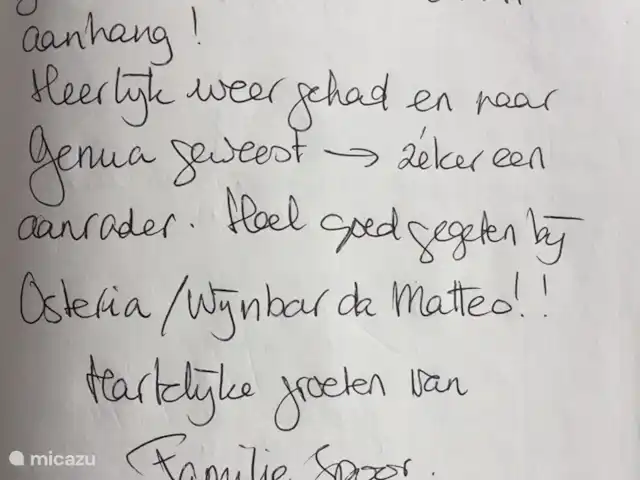 aanhang!
Heerlijk weer gehad en naar
Genua geweest → zéker een
aanrader. Heel goed gegeten bij
Osteria / Wijnbar da Matteo!!
Hartelijke groeten van
Familie Spoor.
micazu